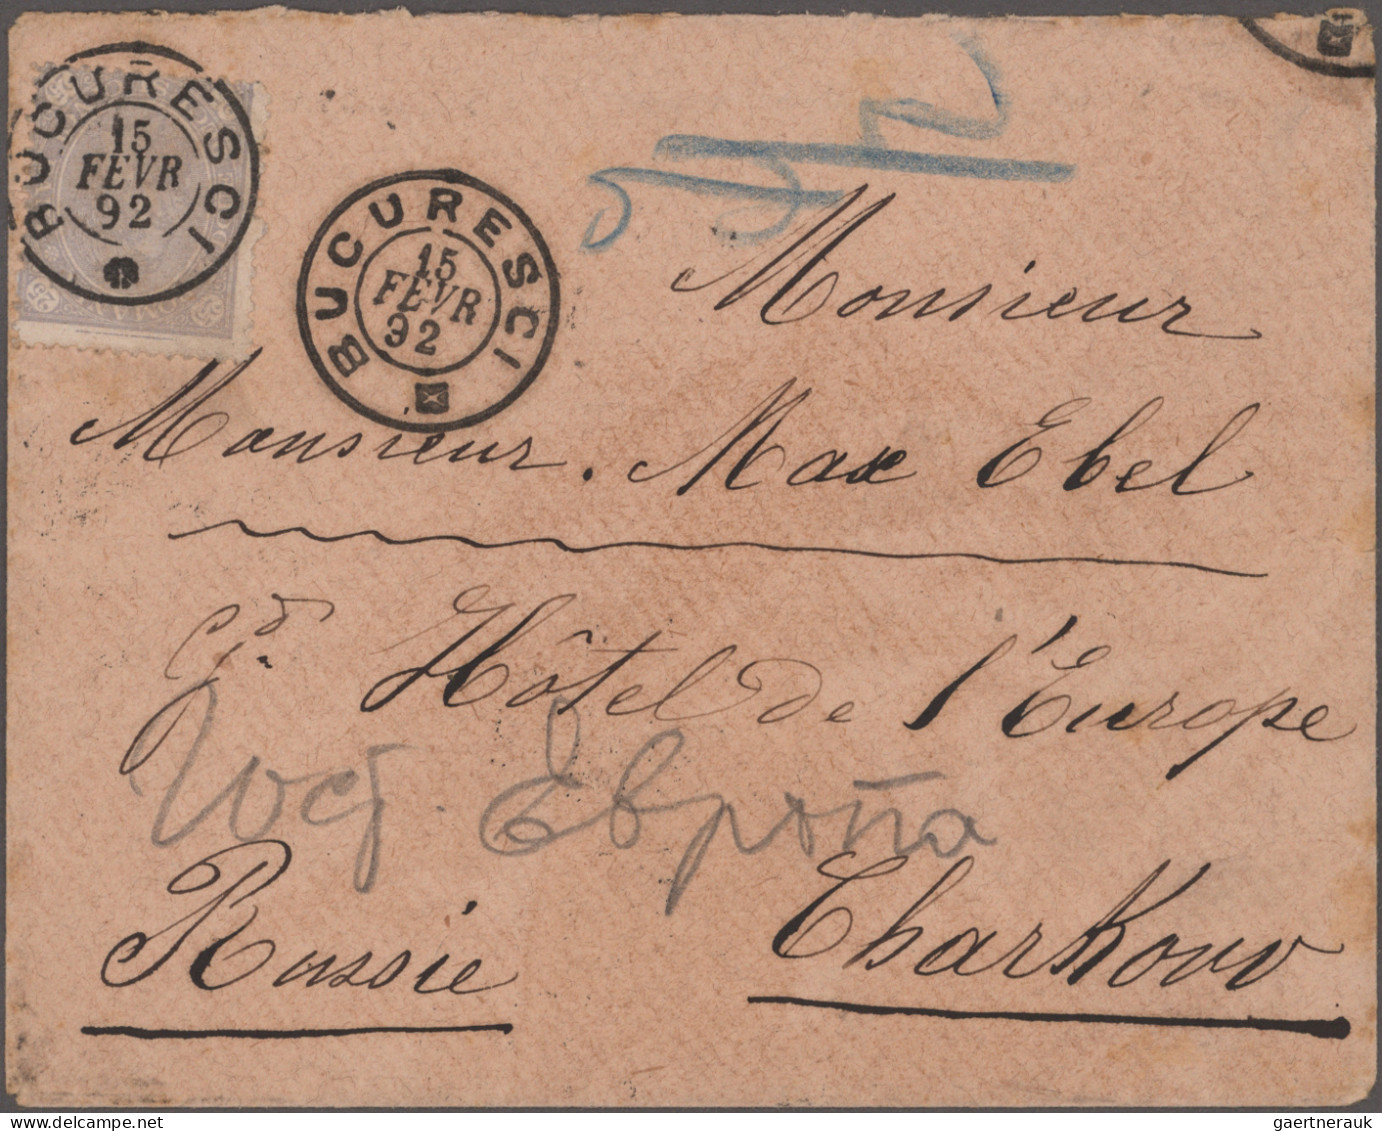 BUCURESCI
15
FEVR
92
25
25
BUCURESCI
15
FEVR
92
Monsieur
Monsieur. Max Ebel
Gd. Hôtel de l'Europe
Гост. Европа
Russie
Charkow
gaertnerauk.com